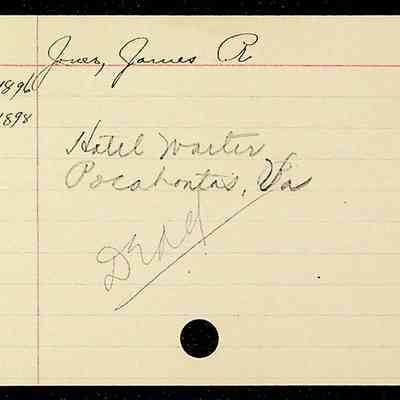 Jones, James R
1896
1898
Hotel Waiter
Pocahontas, Va
Dead